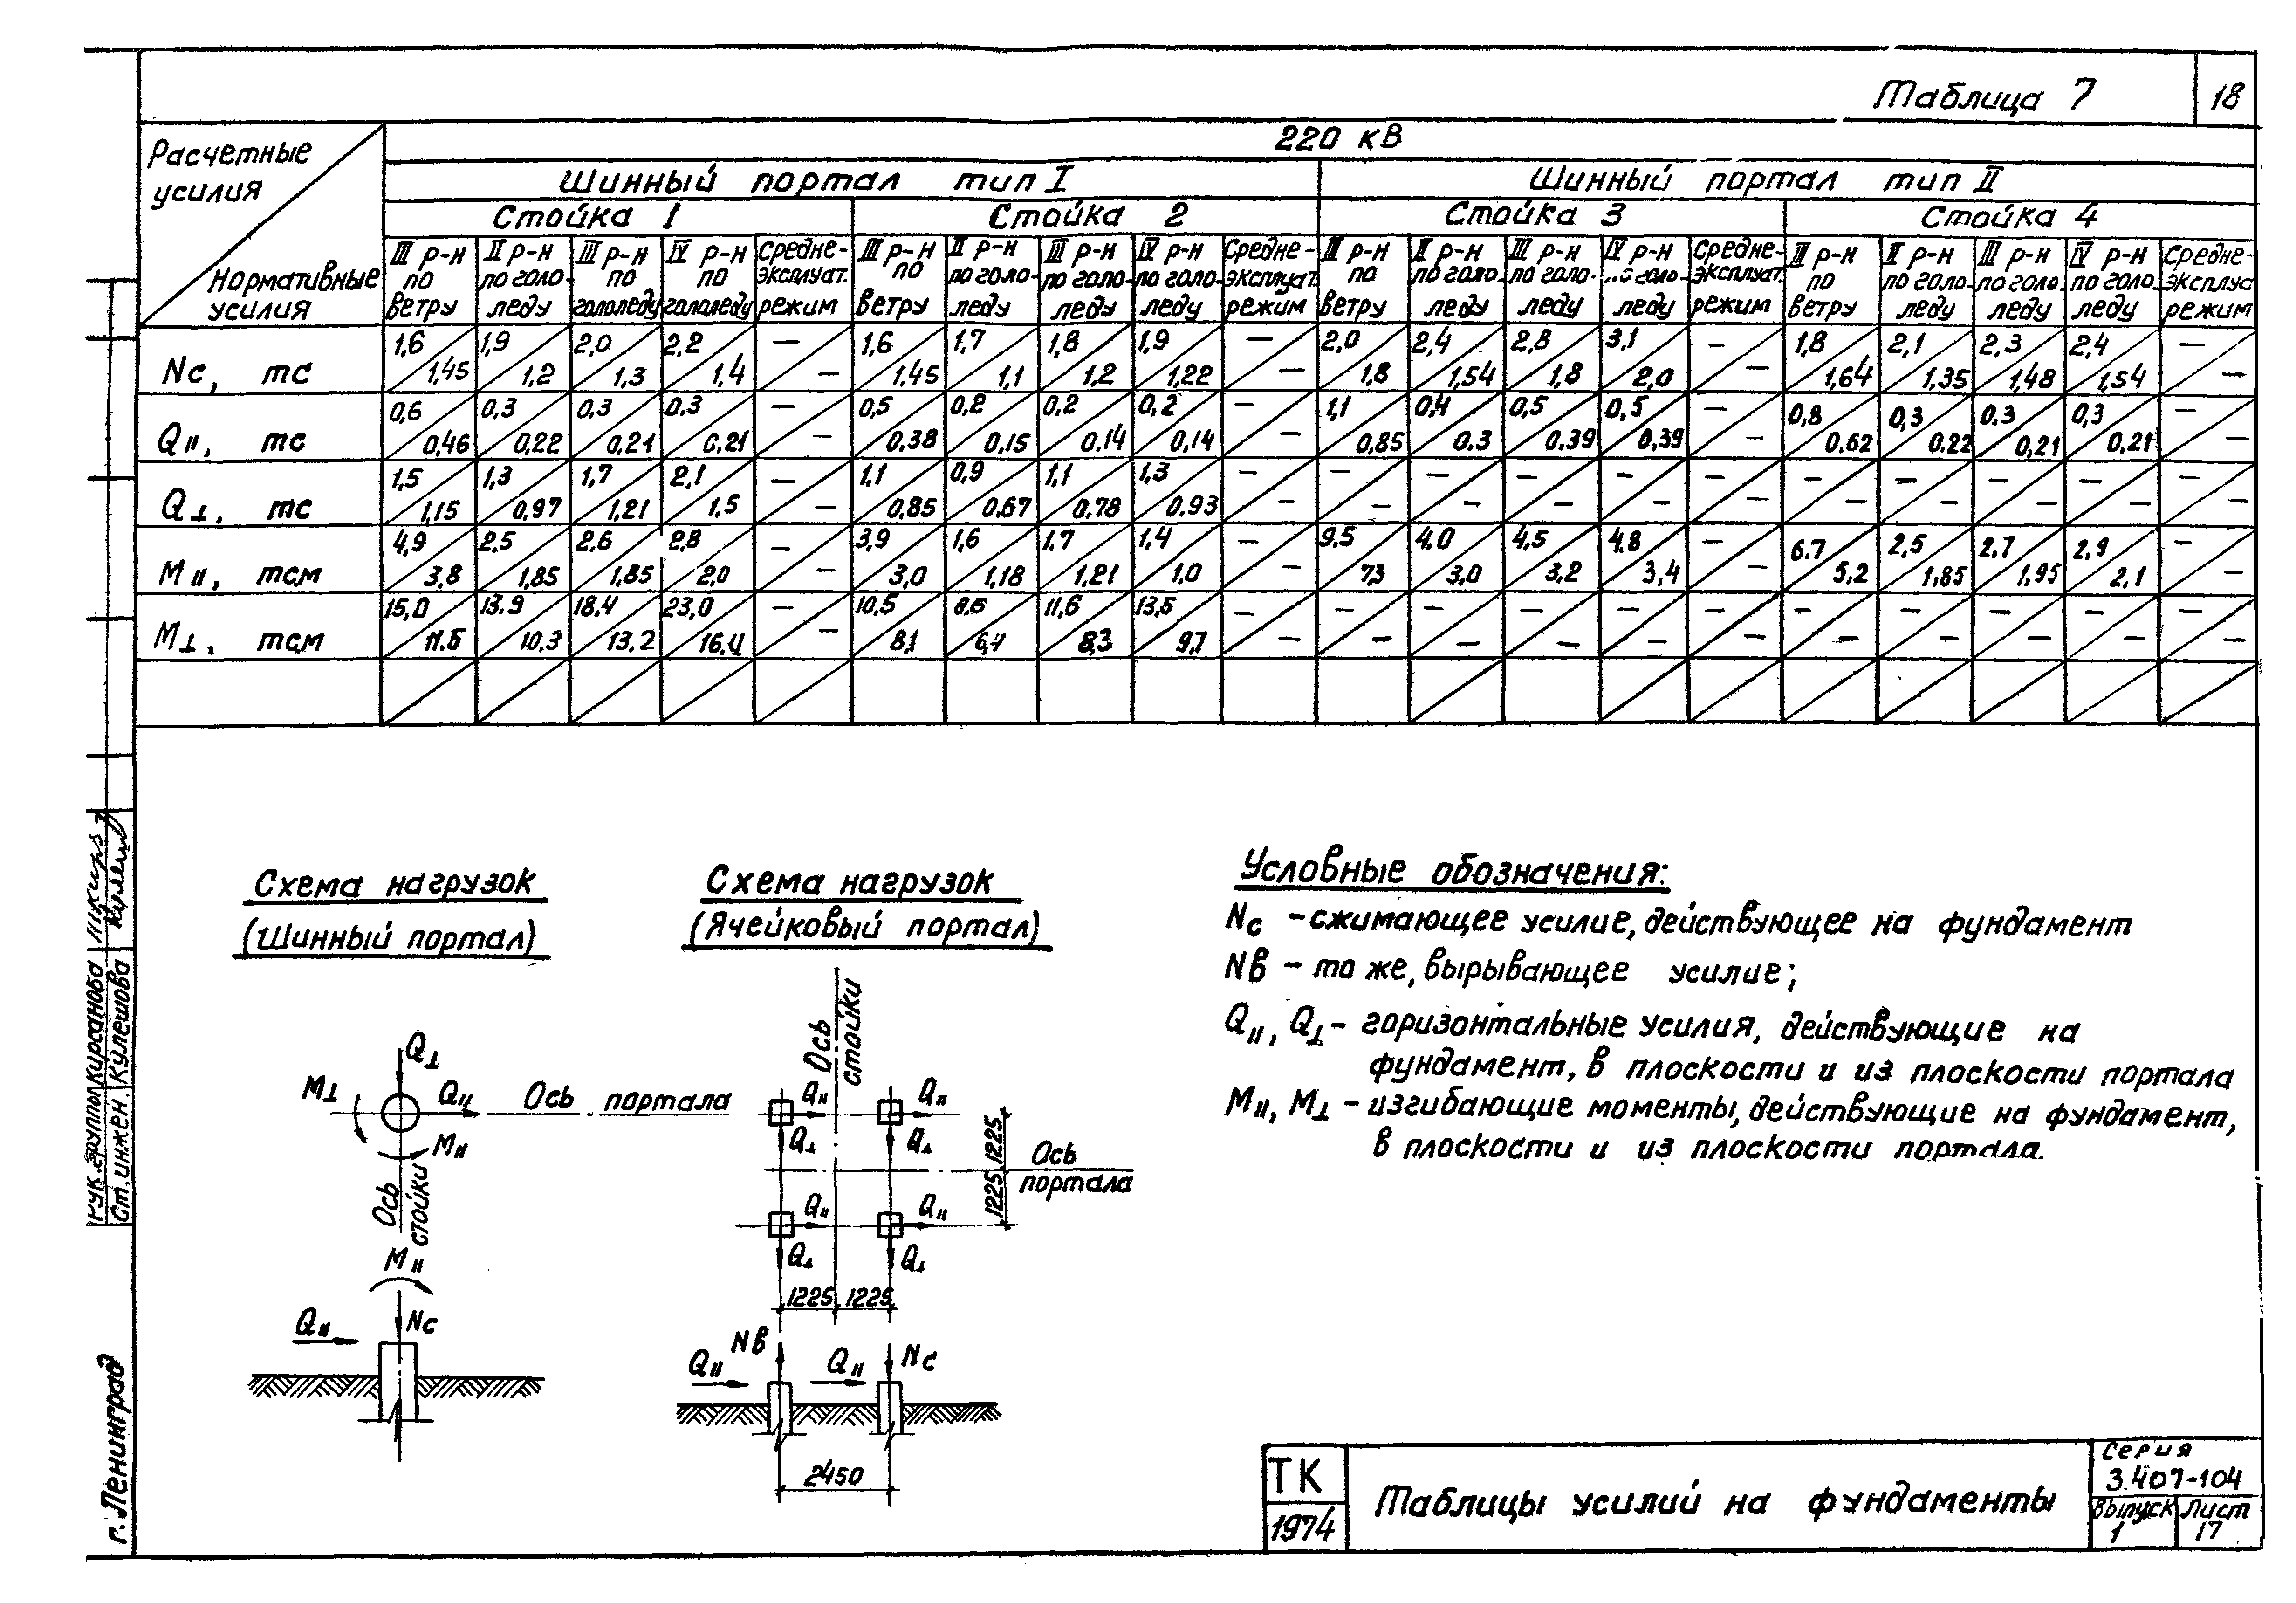 Таблица 7
18
220 кВ
Расчетные усилия
Нормативные усилия
Шинный портал тип I
Шинный портал тип II
Стойка 1
Стойка 2
Стойка 3
Стойка 4
III р-н по ветру
II р-н по гололеду
III р-н по гололеду
IV р-н по гололеду
Средне-эксплуат. режим
III р-н по ветру
II р-н по гололеду
III р-н по гололеду
IV р-н по гололеду
Средне-эксплуат. режим
III р-н по ветру
II р-н по гололеду
III р-н по гололеду
IV р-н по гололеду
Средне-эксплуат. режим
III р-н по ветру
II р-н по гололеду
III р-н по гололеду
IV р-н по гололеду
Средне-эксплуа режим
Nс, тс 1,6/1,45 1,9/1,2 2,0/1,3 2,2/1,4 –/– 1,6/1,45 1,7/1,1 1,8/1,2 1,9/1,22 –/– 2,0/1,8 2,4/1,54 2,8/1,8 3,1/2,0 –/– 1,8/1,64 2,1/1,35 2,3/1,48 2,4/1,54 –/–
Q||, тс 0,6/0,46 0,3/0,22 0,3/0,21 0,3/0,21 –/– 0,5/0,38 0,2/0,15 0,2/0,14 0,2/0,14 –/– 1,1/0,85 0,4/0,3 0,5/0,39 0,5/0,39 –/– 0,8/0,62 0,3/0,22 0,3/0,21 0,3/0,21 –/–
Q⊥, тс 1,5/1,15 1,3/0,97 1,7/1,21 2,1/1,5 –/– 1,1/0,85 0,9/0,67 1,1/0,78 1,3/0,93 –/– –/– –/– –/– –/– –/– –/– –/– –/– –/– –/–
М||, тсм 4,9/3,8 2,5/1,85 2,6/1,85 2,8/2,0 –/– 3,9/3,0 1,6/1,18 1,7/1,21 1,4/1,0 –/– 9,5/7,3 4,0/3,0 4,5/3,2 4,8/3,4 –/– 6,7/5,2 2,5/1,85 2,7/1,95 2,9/2,1 –/–
М⊥, тсм 15,0/11,5 13,9/10,3 18,4/13,2 23,0/16,4 –/– 10,5/8,1 8,6/6,4 11,6/8,3 13,5/9,7 –/– –/– –/– –/– –/– –/– –/– –/– –/– –/– –/–
Схема нагрузок
(Шинный портал)
Q⊥
М⊥
Q||
Ось портала
М||
Ось стойки
М||
Nс
Q||
Схема нагрузок
(Ячейковый портал)
Ось стойки
Q||
Q||
Q⊥
Q⊥
1225
1225
Ось портала
Q||
Q||
Q⊥
Q⊥
1225
1225
Nв
Q||
Q||
Nс
2450
Условные обозначения:
Nс – сжимающее усилие, действующее на фундамент
Nв – то же, вырывающее усилие;
Q||, Q⊥ – горизонтальные усилия, действующие на
фундамент, в плоскости и из плоскости портала
М||, М⊥ – изгибающие моменты, действующие на фундамент,
в плоскости и из плоскости портала.
Рук. группы Кирсанова
Ст. инжен. Кулешова
г. Ленинград
ТК
1974
Таблицы усилий на фундаменты
Серия
3.407-104
Выпуск
1
Лист
17